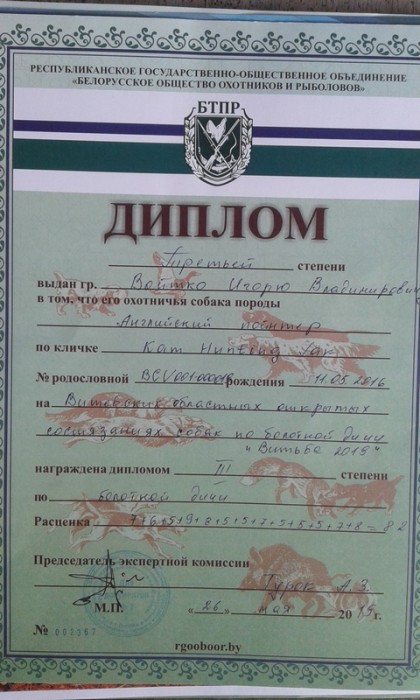 РЕСПУБЛИКАНСКОЕ ГОСУДАРСТВЕННО-ОБЩЕСТВЕННОЕ ОБЪЕДИНЕНИЕ
«БЕЛОРУССКОЕ ОБЩЕСТВО ОХОТНИКОВ И РЫБОЛОВОВ»
БТПР
ДИПЛОМ
Третьей степени
выдан гр. Войтко Игорю Владимирович
в том, что его охотничья собака породы
Английский пойнтер
по кличке Кат Хантинг
№ родословной рождения 11.05.2016
на Витебских областных открытых
состязаниях собак по болотной дичи
"Витьба 2019"
награждена дипломом III степени
по болотной дичи
Расценка
Председатель экспертной комиссии
М.П. «26» мая 2019г.
№ 002367
rgooboor.by